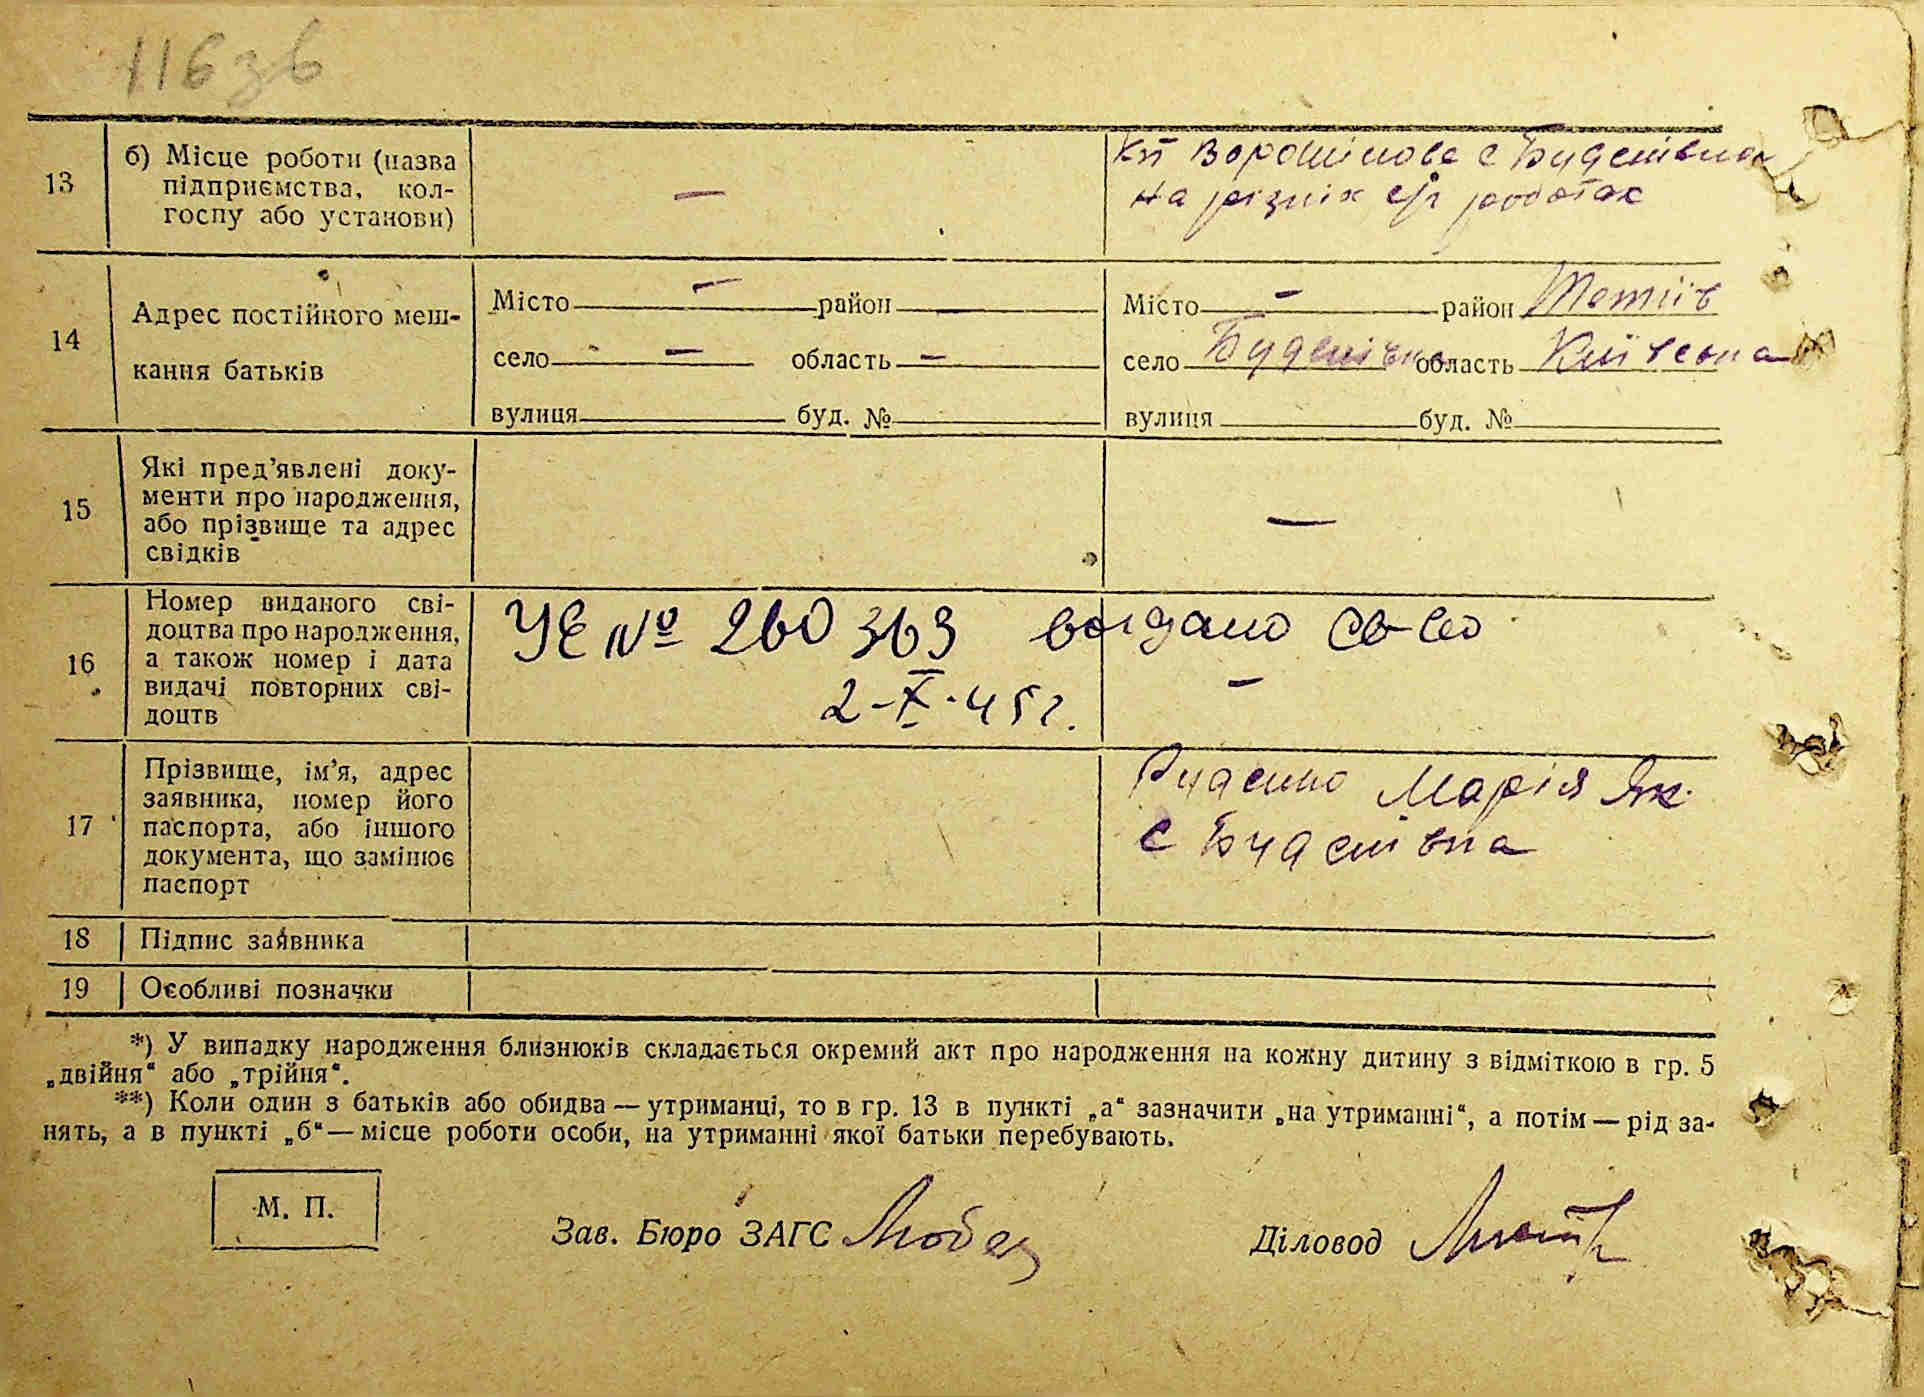 116 зв
13
б) Місце роботи (назва
підприємства, кол-
госпу або установи)
—
Кп Ворошилова с Буденівка
на різних с/г роботах
14
Адрес постійного меш-
кання батьків
Місто — район —
село — область —
вулиця буд. №
Місто — район Тетіїв
село Буденівка область Київська
вулиця буд. №
15
Які пред'явлені доку-
менти про народження,
або прізвище та адрес
свідків
—
16
Номер виданого сві-
доцтва про народження,
а також номер і дата
видачі повторних сві-
доцтв
УЕ № 260 363 выдано св-во
2-X-45 г.
—
17
Прізвище, ім'я, адрес
заявника, номер його
паспорта, або іншого
документа, що замінює
паспорт
Марія Як.
с Буденівка
18
Підпис заявника
19
Особливі позначки
*) У випадку народження близнюків складається окремий акт про народження на кожну дитину з відміткою в гр. 5
„двійня“ або „трійня“.
**) Коли один з батьків або обидва — утриманці, то в гр. 13 в пункті „а“ зазначити „на утриманні“, а потім — рід за-
нять, а в пункті „б“ — місце роботи особи, на утриманні якої батьки перебувають.
М. П.
Зав. Бюро ЗАГС
Діловод